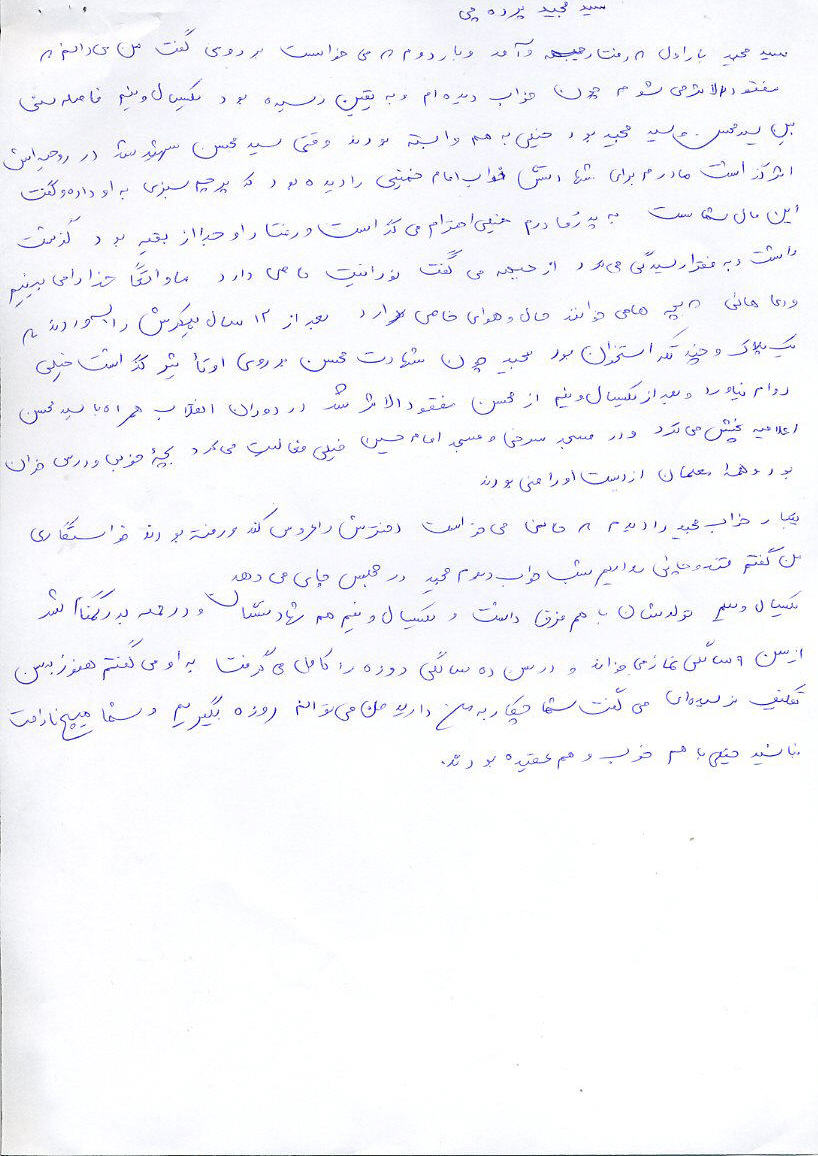 سید مجید پرده چی
سید مجید بار اول که رفتار جبهه و آمد و بار دوم که می خواست برود می گفت من می دانم که
مفقودالاثر می شوم چون خواب دیده ام و به یقین رسیده بود یکسال و نیم فاصله سنی
بین سید محسن و سید مجید بود خیلی به هم وابسته بودند وقتی سید محسن شهید شد در روحیه اش
اثر گذاشت مادرم برای شهادتش خواب امام خمینی را دیده بود که پرچم سبزی به او داده و گفت
این مال شماست به پدر و مادرم خیلی احترام می گذاشت و رفتار او جدا از بقیه بود گذشت
داشت و به فقرا رسیدگی می کرد از جبهه می گفت نورانیت خاصی دارد ما واقعاً خدا را می بینیم
و دعاهائی که بچه ها می خوانند حال و هوای خاصی دارد بعد از ۱۲ سال پیکرش را آوردند که
یک پلاک و چند تکه استخوان بود مجید چون شهادت محسن بر روی او تأثیر گذاشت خیلی
دوام نیاورد و بعد از یکسال و نیم از محسن مفقودالاثر شد در دوران انقلاب همراه با سید محسن
اعلامیه پخش می کرد و در مسجد سرخی و مسجد امام حسین خیلی فعالیت می کرد بچۀ خوب و درس خوان
بود و همۀ معلمان از دست او راضی بودند
یکبار خواب مجید را دیدم که می خواست دخترش را عروس کند و رفته بودند خواستگاری
من گفتم شب خواب دیدم مجید در مجلس چای می دهد
یکسال و نیم تولدشان با هم فرق داشت و یکسال و نیم هم شهادتشان و در حمله بدر گمنام شد
از سن ۹ سالگی نماز می خواند و در سن ده سالگی روزه را کامل می گرفت به او می گفتم هنوز به سن
تکلیف نرسیده ای می گفت شما چکار به من دارید من می توانم روزه بگیرم و شما هیچ ناراحت
نباشید خیلی با هم خوب و هم عقیده بودند.